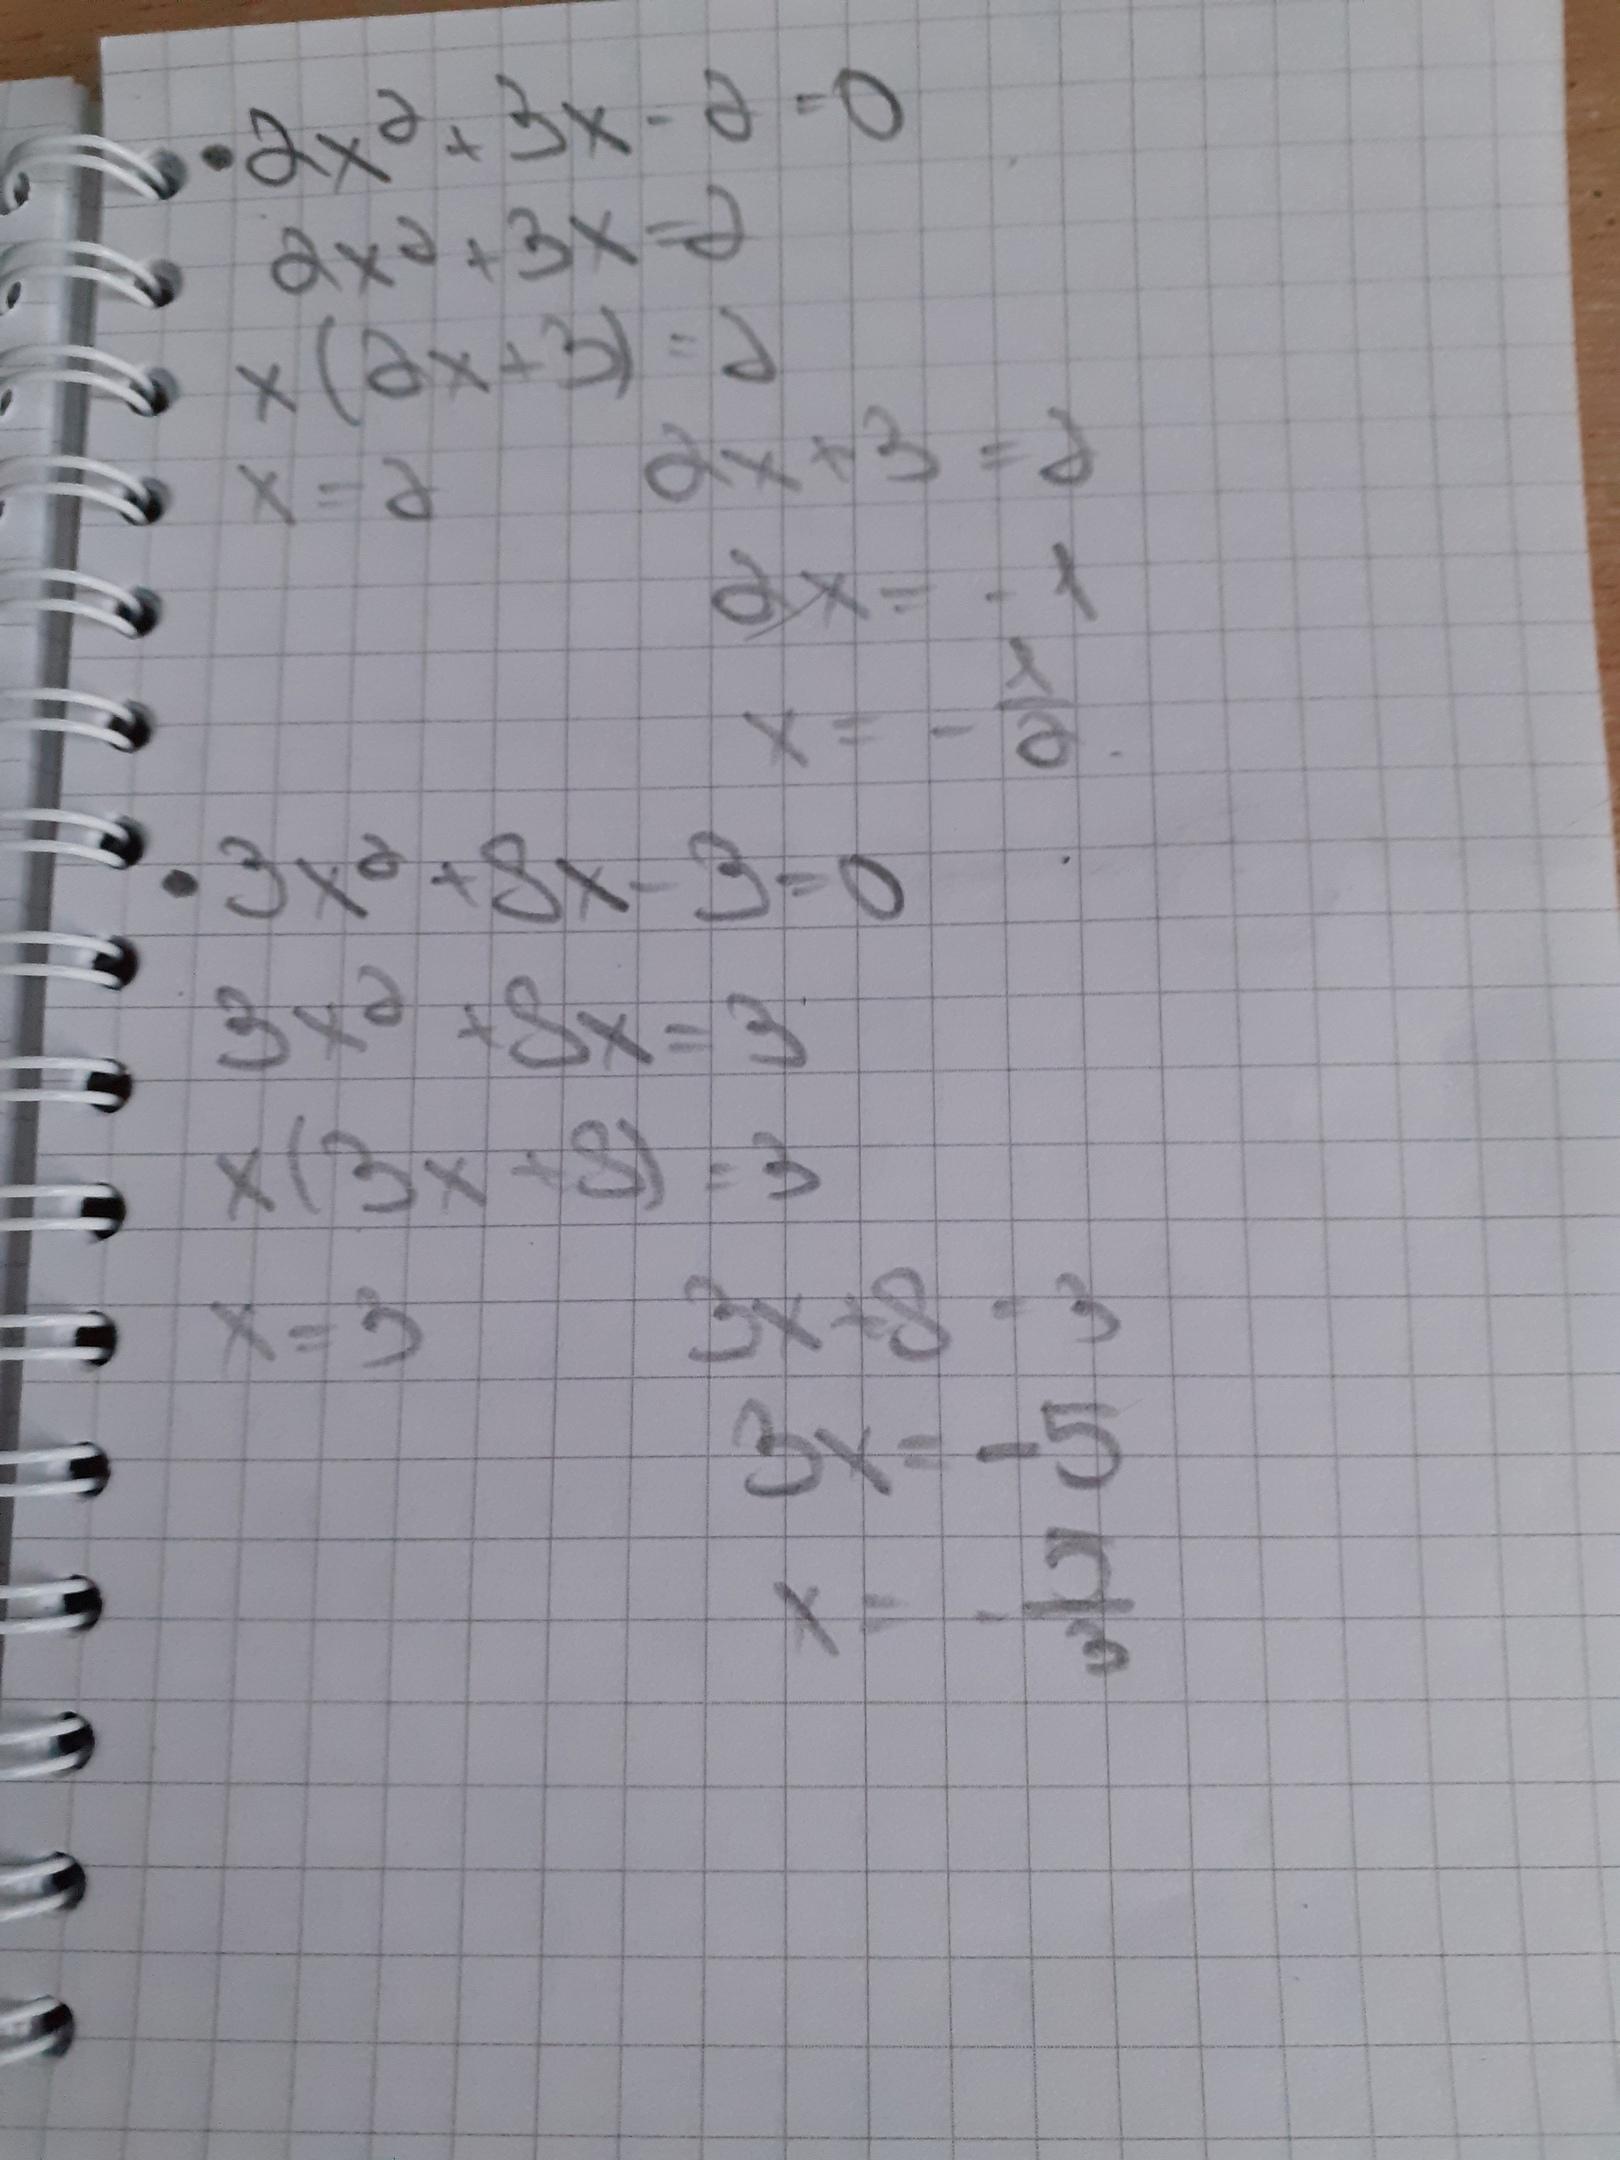 • 2x² + 3x - 2 = 0
2x² + 3x = 2
x(2x+3) = 2
x = 2 2x+3 = 2
2x = -1
x = -1/2
• 3x² + 8x - 3 = 0
3x² + 8x = 3
x(3x+8) = 3
x = 3 3x+8 = 3
3x = -5
x = -5/3